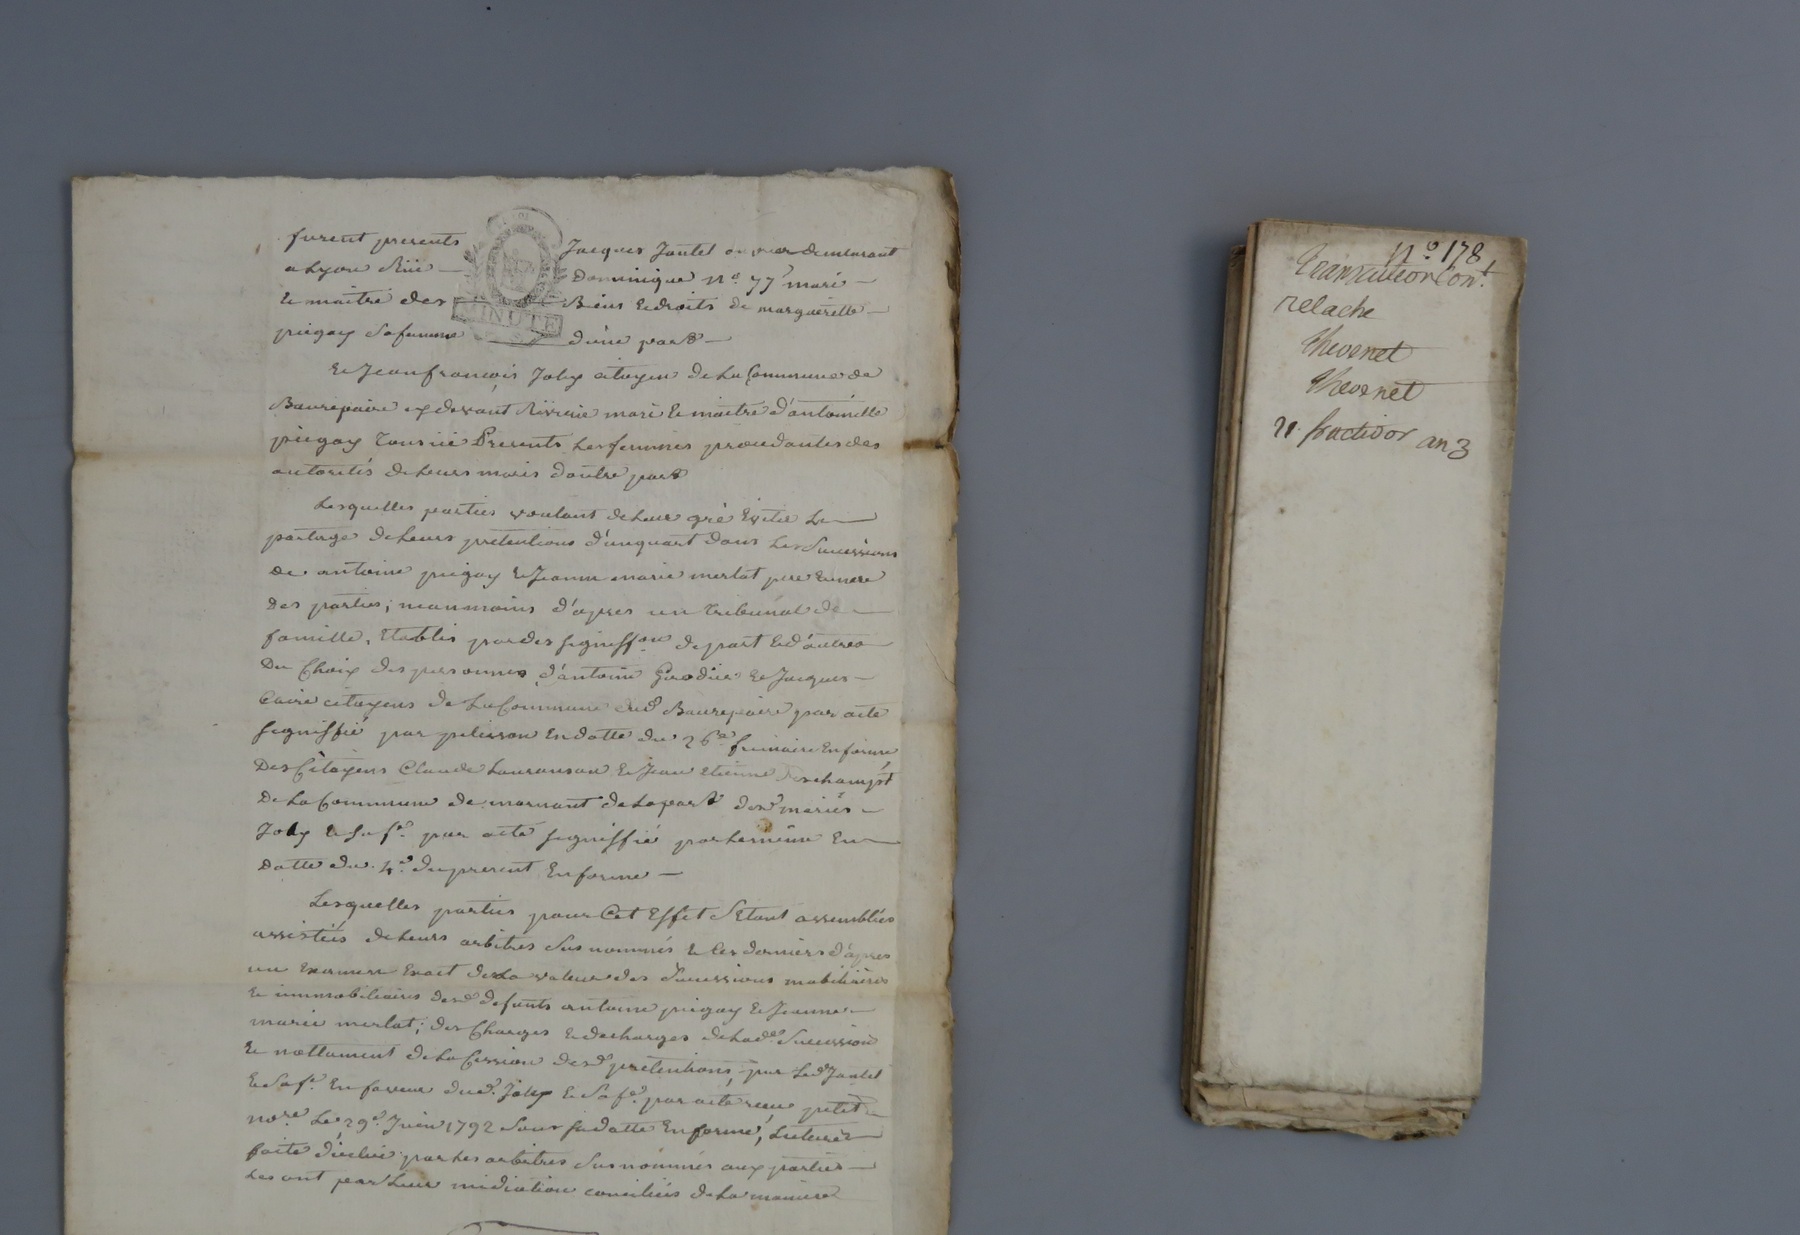 furent presents Jacques Jantet ouvrier demeurant
a Lyon Rüe Dominique N.o 77 mari
le maitre des Biens et droits de margueritte
piegay sa femme d'une part
Et Jean françois Joly citoyen de La Commune de
Baurepaire cy devant Riverie mari et maitre d'antoinette
piegay Presents Les femmes procedantes des
autorités de Leurs maris d'autre part
Lesquelles parties voulant de Leur gré Eviter Le
partage de Leurs pretentions d'un quart dans Les Sucessions
de antoine piegay et Jeanne marie merlat pere et mere
des parties; neanmoins d'apres un tribunal de
famille, Etablis par des signiff.on de part et d'autres
Du Choix des personnes d'antoine et Jacques
citoyens de La Commune dud. Baurepaire par acte
signiffié par pelisson En datte du 26.e frimaire En forme
Des Citoyens Claude et Jean Etienne
De La Commune de mornant de La part desd. mariés
Joly et sa f.e par acte signiffié par Le même En
Datte du 4.e du present En forme
Lesquelles parties pour Cet Effet S'Etant assemblées
assistées de Leurs arbitres Susnommés et Ces derniers d'apres
un Examen Exact de La valeur des Sucessions mobiliaires
et immobiliaires desd. defunts antoine piegay et Jeanne
marie merlat; des Charges et decharges de Lad. Sucession
et nottament de La Cession desd. pretentions, par Led. Jantet
et Sa f.e En faveur dud. Joly et Sa f.e par acte recu petit
no.re Le 29.e Juin 1792 Sous Sa datte En forme, Lecture
faite d'icelui par Les arbitres Susnommés aux parties
Les ont par Leur mediation conciliés de La maniere
MINUTE
N.o 178
Transaction Con.t
relache
thevenet
thevenet
21 fructidor an 3